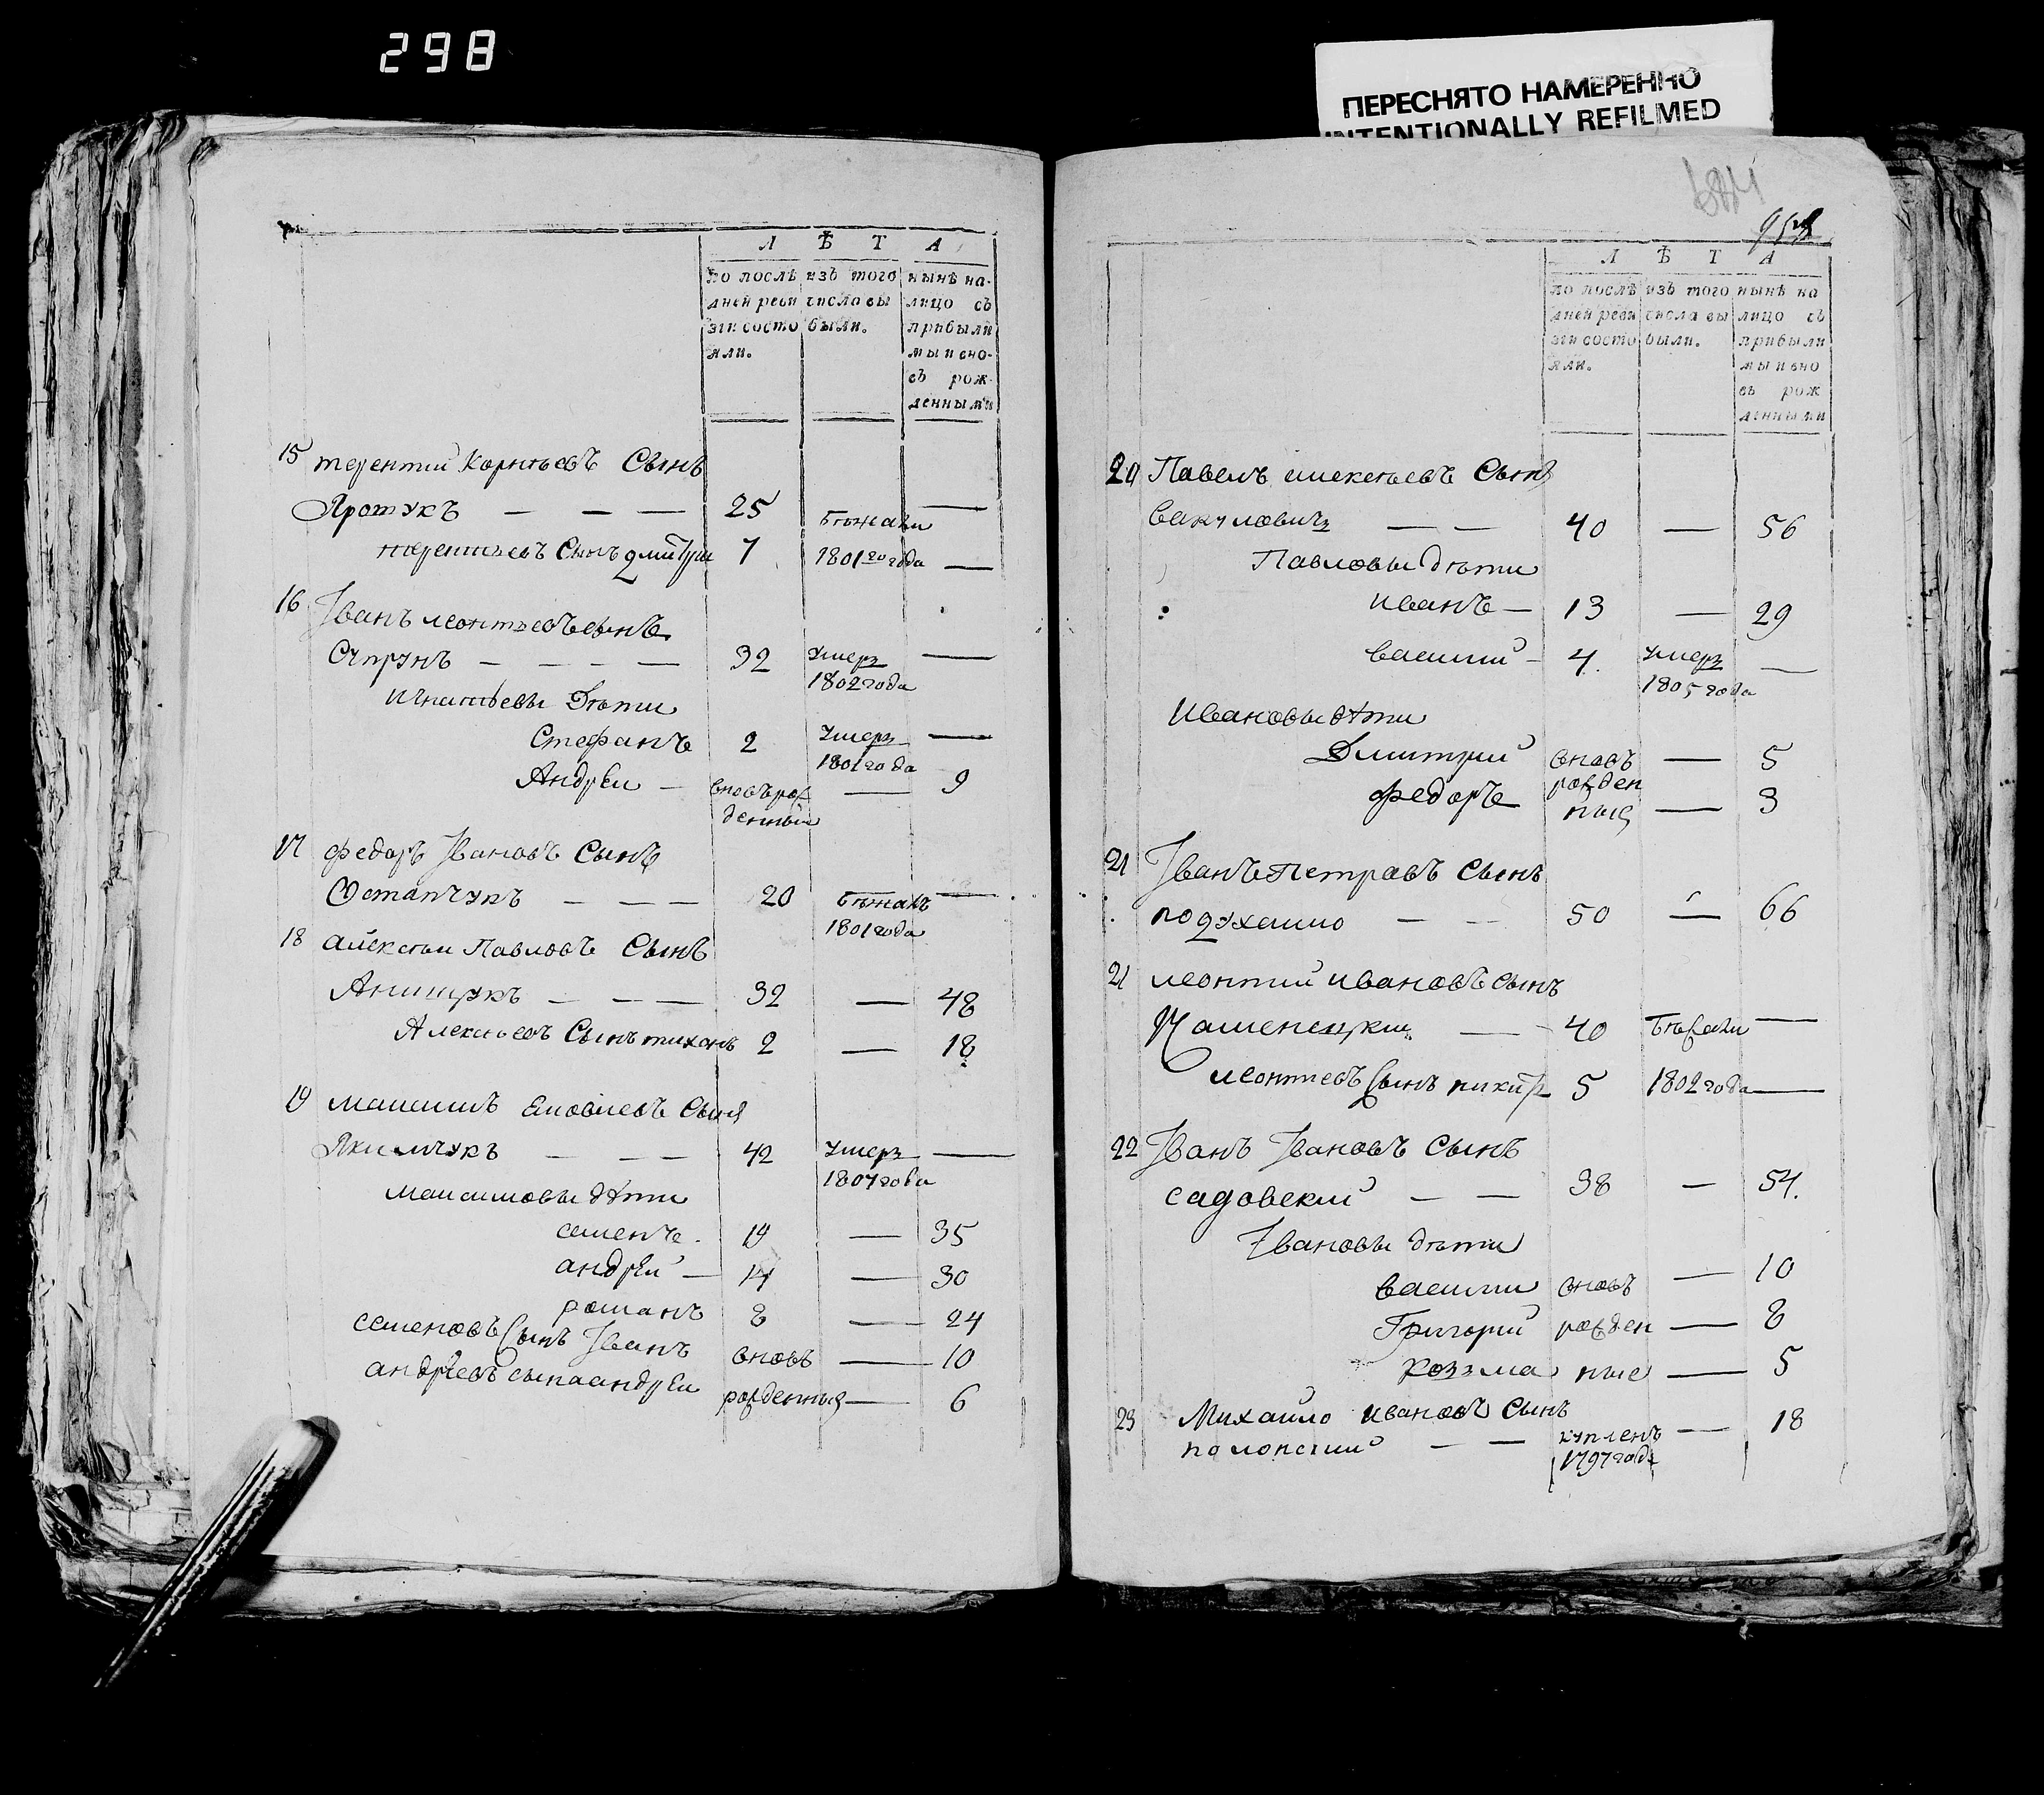 298
ПЕРЕСНЯТО НАМЕРЕННО
INTENTIONALLY REFILMED
Л Ѣ Т А
по послѣдней ревизіи состояли.
изъ того числа выбыли.
нынѣ налицо съ прибылимы и вновь рожденными
15 терентий Корнѣевъ Сынъ
Яротукъ — — — 25 бѣжали —
терентьевъ Сынъ дмитрий 7 1801го года —
16 Iванъ леонтьевъ сынъ
Супрунъ — — — — 32 умеръ —
1802 года
Игнатьевы Дѣти
Стефанъ 2 умеръ —
1801 года
Андрѣи — вновь рожденный — 9
17 федоръ Iвановъ Сынъ
Остапчукъ — — — 20 бѣжалъ —
1801 года
18 алексѣи Павловъ Сынъ
Анищукъ — — — 32 — 48
Алексѣевъ Сынъ тихонъ 2 — 18
19 максимъ Сынъ
Якимчукъ — — — 42 умеръ —
1807 года
максимовы дѣти
семенъ 19 — 35
андрѣй — 14 — 30
романъ 8 — 24
семеновъ Сынъ Iванъ вновь — 10
андрѣевъ сынъ андрѣи рожденныя — 6
958
Л Ѣ Т А
по послѣдней ревизіи состояли.
изъ того числа выбыли.
нынѣ налицо съ прибылимы и вновь рожденными
20 Павелъ алексѣевъ Сынъ
Вакуловичъ — — 40 — 56
Павловы дѣти
иванъ — 13 — 29
василий — 4. умеръ —
1805 года
Ивановы дѣти
Дмитрий вновь — 5
федоръ рожденныя — 3
21 Iванъ Петровъ Сынъ
подухайло — — 50 — 66
21 леонтий ивановъ сынъ
Каменецкий — 40 бѣжали —
леонтиевъ Сынъ никита 5 1802 года —
22 Iванъ Iвановъ Сынъ
садовский — — 38 — 54.
Iвановы дѣти
василии вновь — 10
Григорий рожден — 8
козма ные — 5
23 Михайло ивановъ Сынъ
полонский — — купленъ — 18
1797 года